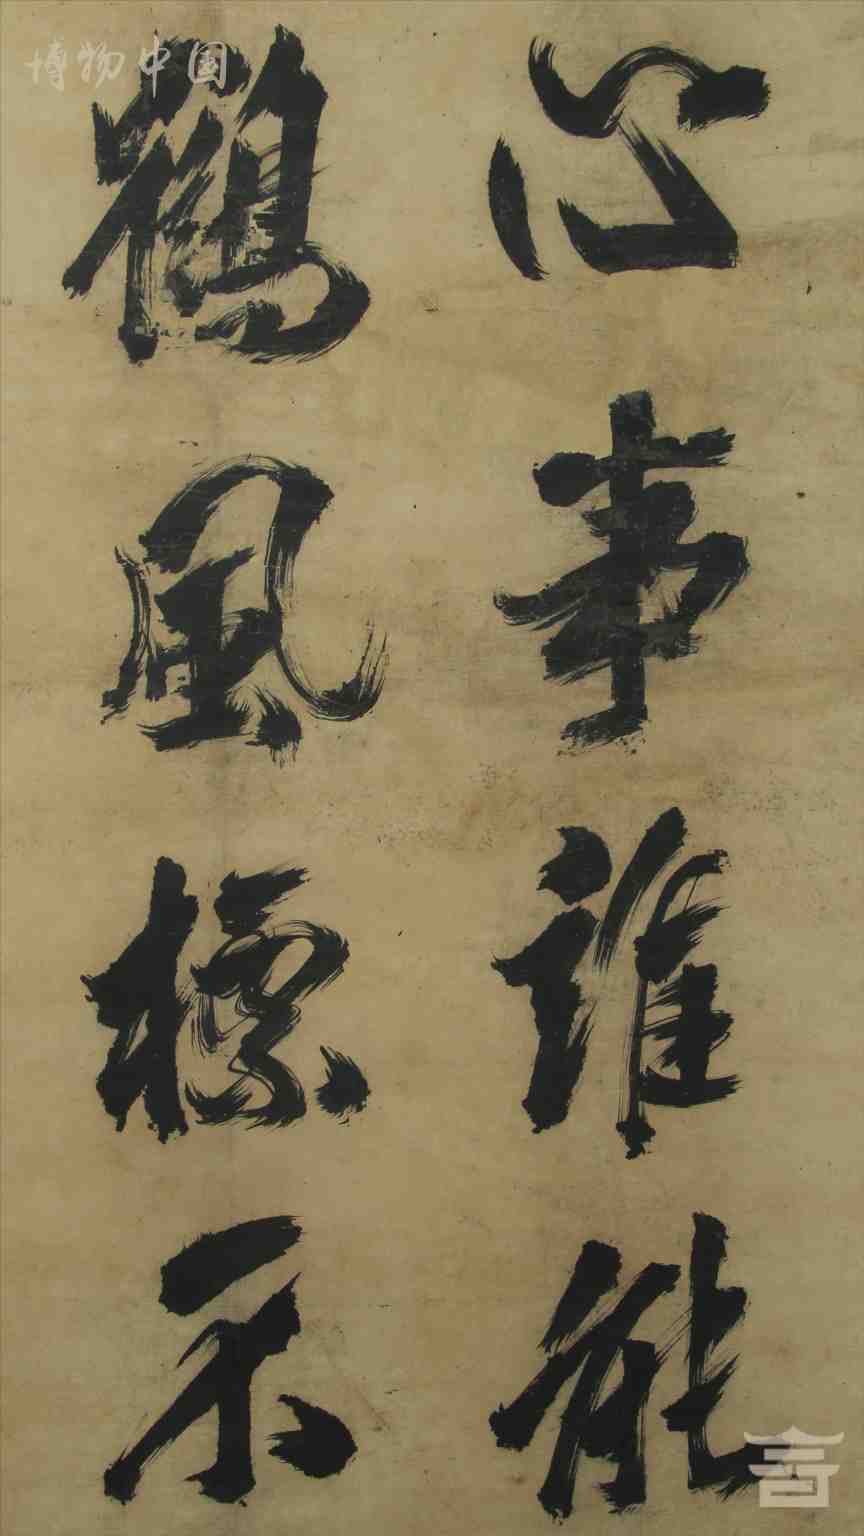 心事誰能
鶴風標不
博物中国